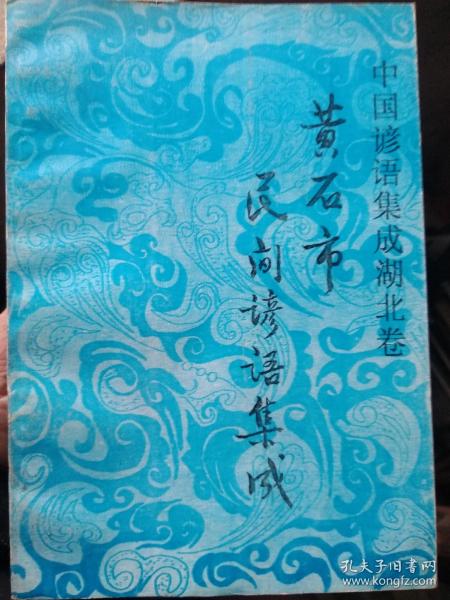 中国谚语集成湖北卷
黄石市
民间谚语集成
孔夫子旧书网
www.kongfz.com